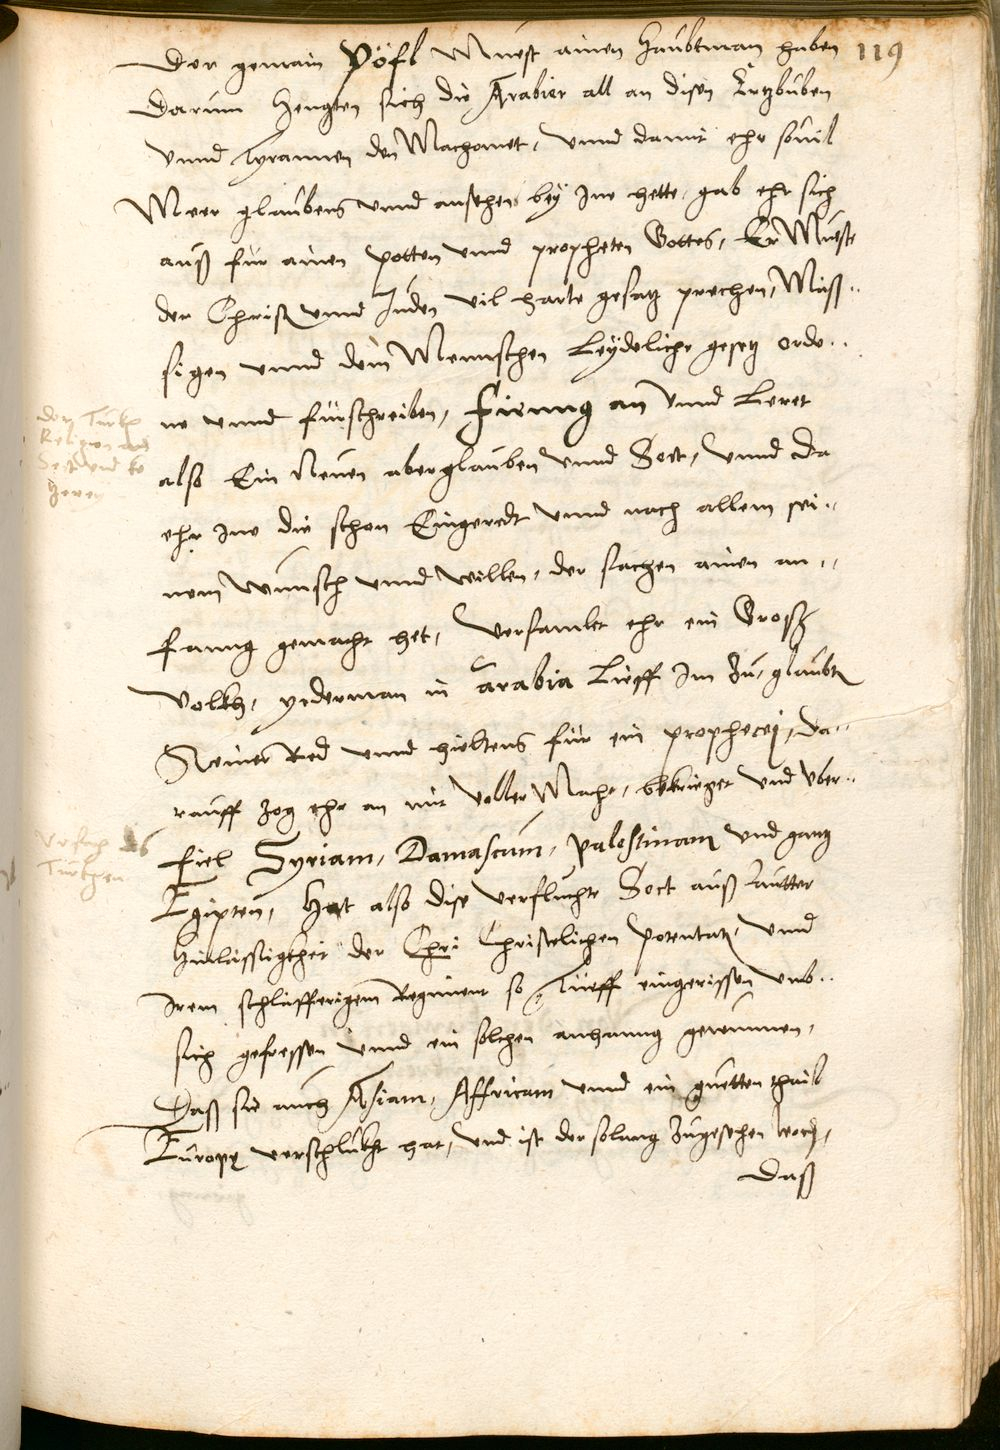 119
Der gemain Pöfl Muest ainen Haubtman haben
Darum Hengten sich die Arabier all an disen Ertzbuben
vnnd Tyrannen den Machomet, vnnd damit ehr souil
Meer glaubens vnnd ansehens bey Ine hette, gab ehr sich
auß für ainen potten vnnd propheten Gottes, Er Mueste
der Christ vnnd Juden vil harte gesatz prechen, Mäss..
sigen vnnd dem Mennschen Leydeliche gesetz orde..
ne vnnd fürschreiben, Fienng an vnnd Leret
also Ein Neuen aberglauben vnnd Sect, vnnd Da
ehr Ine die schon Eingeredt vnnd nach allem sei..
nem wunsch vnnd willen, der sachen ainen an..
fanng gemacht het, Versamlet ehr ein Groß
Volkh, yederman in Arabia Lieff Im zu, glaubt
Seiner Red vnnd hieltens für ein prophecej, Da..
rauff zog ehr an mit voller Macht, bekrieget vnd vber..
fiel Syriam, Damascum, Palestinam vnd gantz
Egipten, Hat also dise verfluchte Sect auß Lautter
Hinlässigkheit der Chri Christelichen Potentat, vnnd
Irem schläfferigem Regiment so Tüeff eingerissen vmb..
sich gefressen vnnd ein solchen anhanng gewunnen,
Daß sie auch Asiam, Affricam vnnd ein guetten thail
Europę verschlukht hat, vnd ist der solang zugesehen word,
Daß
Der Türk
Religion
Sect vnd
Vrsach des
Türkhen